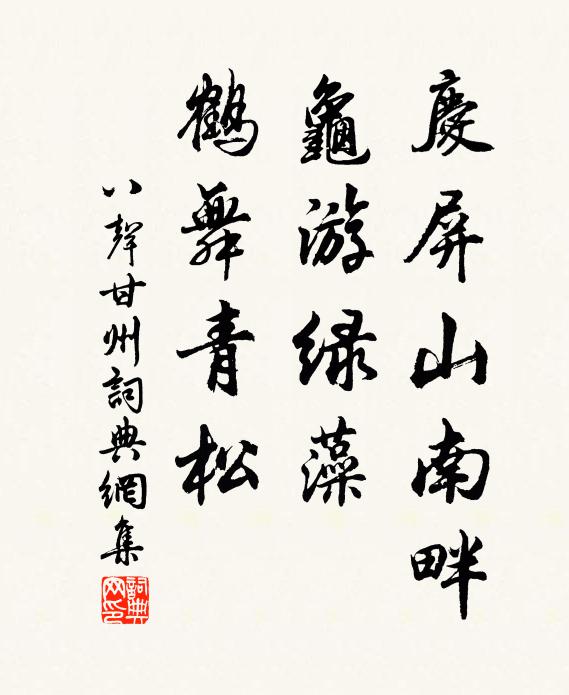 慶屏山南畔
龜游緑藻
鶴舞青松
八聲甘州詞典網集
詞典网印